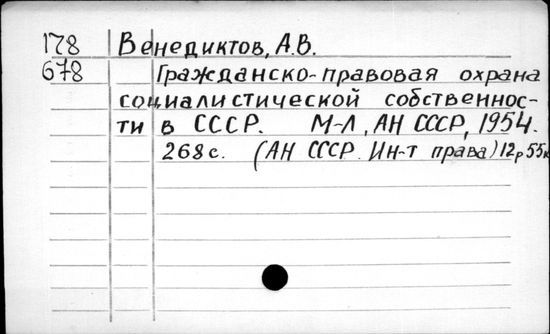 178 Венедиктов, А.В.
678 Гражданско-правовая охрана
социалистической собственнос-
ти в СССР. М-Л, АН СССР, 1954.
268 с. (АН СССР. Ин-т права) 12р 55к